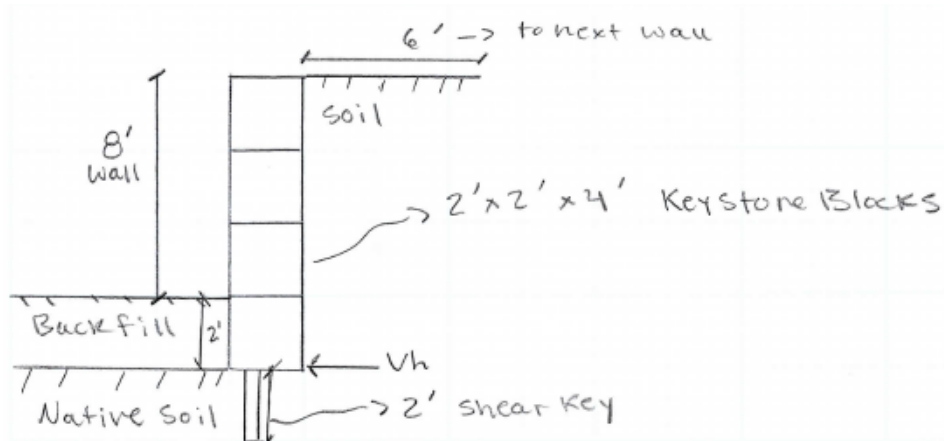 6' -> to next wall
soil
8'
wall
2' x 2' x 4' Keystone Blocks
Backfill
2'
Vh
Native Soil
2' shear key